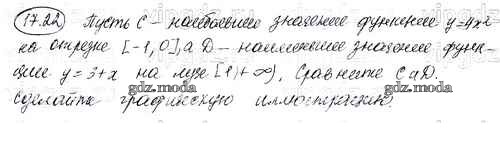 17.22 Пусть C - наибольшее значение функции y=4x²
на отрезке [-1,0], а D - наименьшее значение функ-
ции y=3+x на луче [1;+∞), Сравните C и D.
gdz.moda gdz.moda
сделайте графическую иллюстрацию.
gdz.moda gdz.moda